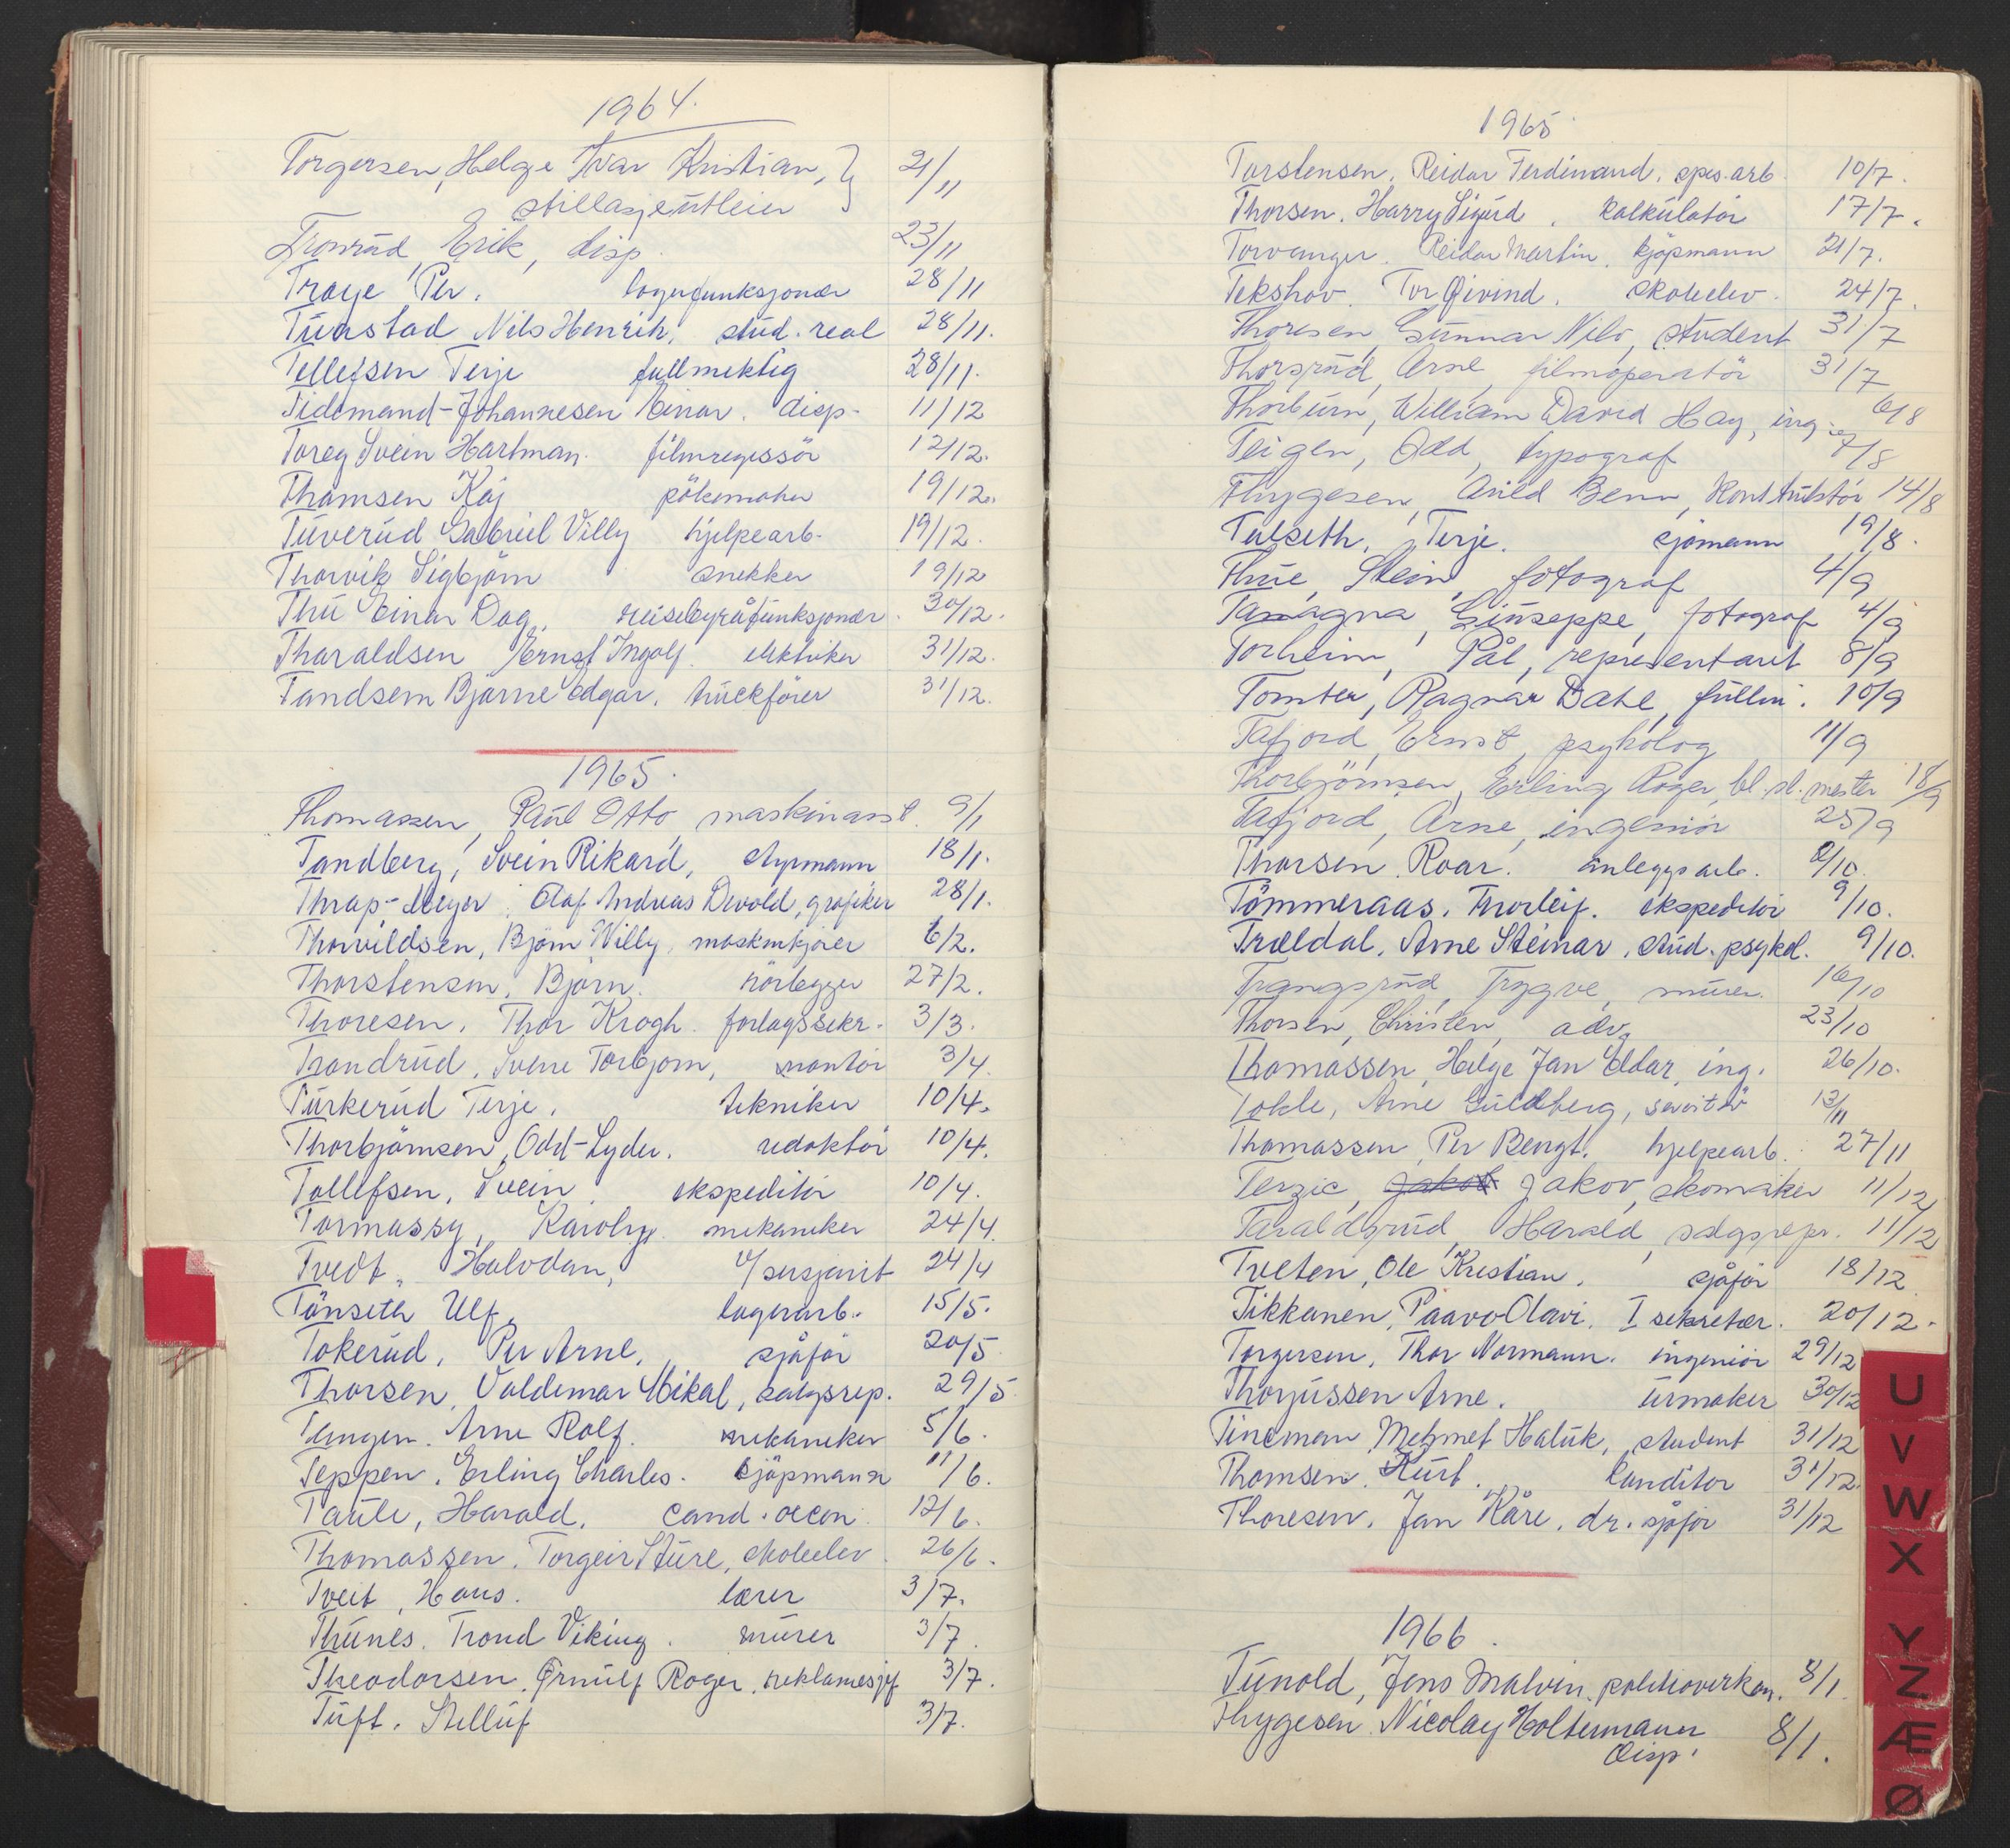 1964.
Torgersen, Helge Ivar Kristian, } 21/11
stillasjeutleier
Tronrud, Erik, disp. 23/11
Troye Per. lagerfunksjonær 28/11
Tunstad Nils Henrik, stud. real 28/11.
Tellefsen Terje fullmektig 28/11.
Tidemand-Johannesen Einar. disp. 11/12
Toreg Svein Hartman. filmregissör 12/12.
Thomsen Kaj 19/12.
Tuverud Gabriel Villy hjelpearb. 19/12.
Thorvik Sigbjörn snekker 19/12
Thu Einar Dag, reisebyråfunksjonær. 30/12.
Tharaldsen Ernst Ingolf. elektriker 31/12.
Tandsem Bjarne Edgar. truckförer 31/12.
1965.
Thomassen, Paul Otto, maskinasst. 9/1
Tandberg, Svein Rikard, styrmann 18/1.
Thrap-Meyer, Olaf Andreas Devold, grafiker 28/1.
Thorvildsen, Björn Willy, maskinkjörer 6/2.
Thorstensen, Björn. rörlegger 27/2.
Thoresen, Thor Krogh. forlagssekr. 3/3.
Trondrud, Sverre Torbjørn, montör 3/4.
Turkerud Terje. tekniker 10/4.
Thorbjörnsen, Odd-Lyder. redaktör 10/4.
Tollefsen, Svein. ekspeditör 10/4.
Tormassy, Karoly. mekaniker 24/4.
Tvedt, Halvdan, v/sersjant 24/4
Tönseth Ulf, lagerarb. 15/5.
Tokerud, Per Arne, sjåför 20/5
Thorsen, Valdemar Mikal, salgsrep. 29/5
Tangen. Arne Rolf. mekaniker 5/6.
Teppen, Erling Charles. kjöpmann 11/6.
Taule, Harald, cand. oecon. 12/6.
Thomassen. Torgeir Sture, skoleelev 26/6.
Tveit, Hans. lærer 3/7.
Thunes. Trond Viking. murer 3/7.
Theodorsen. Ørnulf Roger, reklamesjef 3/7.
Tuft. Stelluf 3/7.
1965
Torstensen, Reidar Ferdinand. spes.arb. 10/7.
Thorsen. Harry Sigurd. kalkulatör 17/7.
Torvanger. Reidar Martin. kjöpmann 21/7.
Tekshov. Tor Øivind. skoleelev. 24/7.
Thoresen, Gunnar Nils, student 31/7
Thorsrud, Arne, filmoperatör 31/7
Thorburn, William David Hay, ing. 6/8
Teigen, Odd, typograf 7/8
Thygesen, Arild Benn, Konstruktör 14/8
Talseth, Terje. sjömann 19/8.
Thue, Stein, fotograf 4/9
Tamagna, Giuseppe, fotograf 4/9
Torheim, Pål, representant 8/9
Tomter, Ragnar Dahl, fullm. 10/9
Tafjord, Ernst, psykolog 11/9
Thorbjörnsen, Erling Roger, bl.sl. mester 18/9
Tafjord, Arne, ingeniör 25/9
Thorsen, Roar. anleggsarb. 2/10.
Tömmeraas, Thorleif. ekspeditör 9/10.
Trældal, Arne Steinar, stud. psykol. 9/10.
Trangsrud, Trygve, murer. 16/10
Thorsen, Christen, adv. 23/10
Thomassen, Helge Jan Eldar, ing. 26/10.
Tokle, Arne Guldberg, servitör 13/11
Thomassen, Per Bengt. hjelpearb. 27/11
Terzic, Jakob Jakov, skomaker 11/12
Taraldsrud, Harald, salgsrepr. 11/12
Tveten, Ole Kristian. sjåför 18/12
Tikkanen, Paavo Olavi. I sekretær. 20/12.
Torgersen, Thor Normann. ingeniör 29/12
Thorjussen Arne. urmaker 30/12
Tineman, Mehmet Haluk, student 31/12
Thomsen. Kurt. konditor 31/12.
Thoresen, Jan Kåre, dr. sjåför 31/12
1966.
Tunold, Jens Malvin. politioverkon. 8/1.
Thygesen Nicolay Holtermann 8/1.
Disp.
U
V
W
X
Y
Z
Æ
Ø